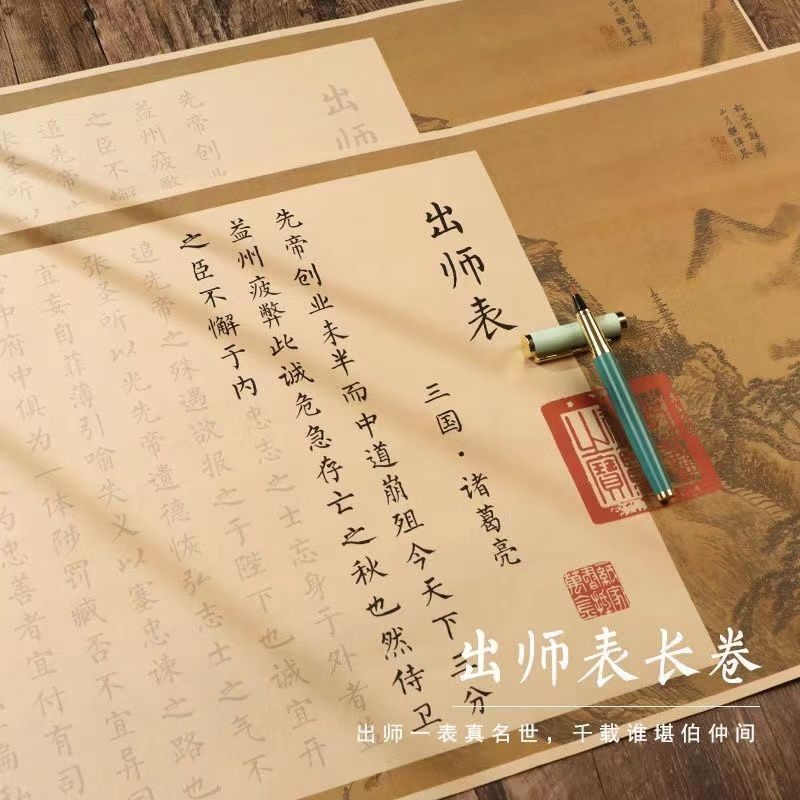 松风吹解带
山月照弹琴
出师
先帝创业
益州疲弊
之臣不懈
追先帝之
张圣听以
出师表
三国·诸葛亮
先帝创业未半而中道崩殂今天下三分
益州疲弊此诚危急存亡之秋也然侍卫
之臣不懈于内忠志之士忘身于外者
追先帝之殊遇欲报之于陛下也诚宜开
张圣听以光先帝遗德恢弘志士之气不
宜妄自菲薄引喻失义以塞忠谏之路也
中府中俱为一体陟罚臧否不宜异同
为忠善者宜付有司
之寶
出师表长卷
出师一表真名世，千载谁堪伯仲间